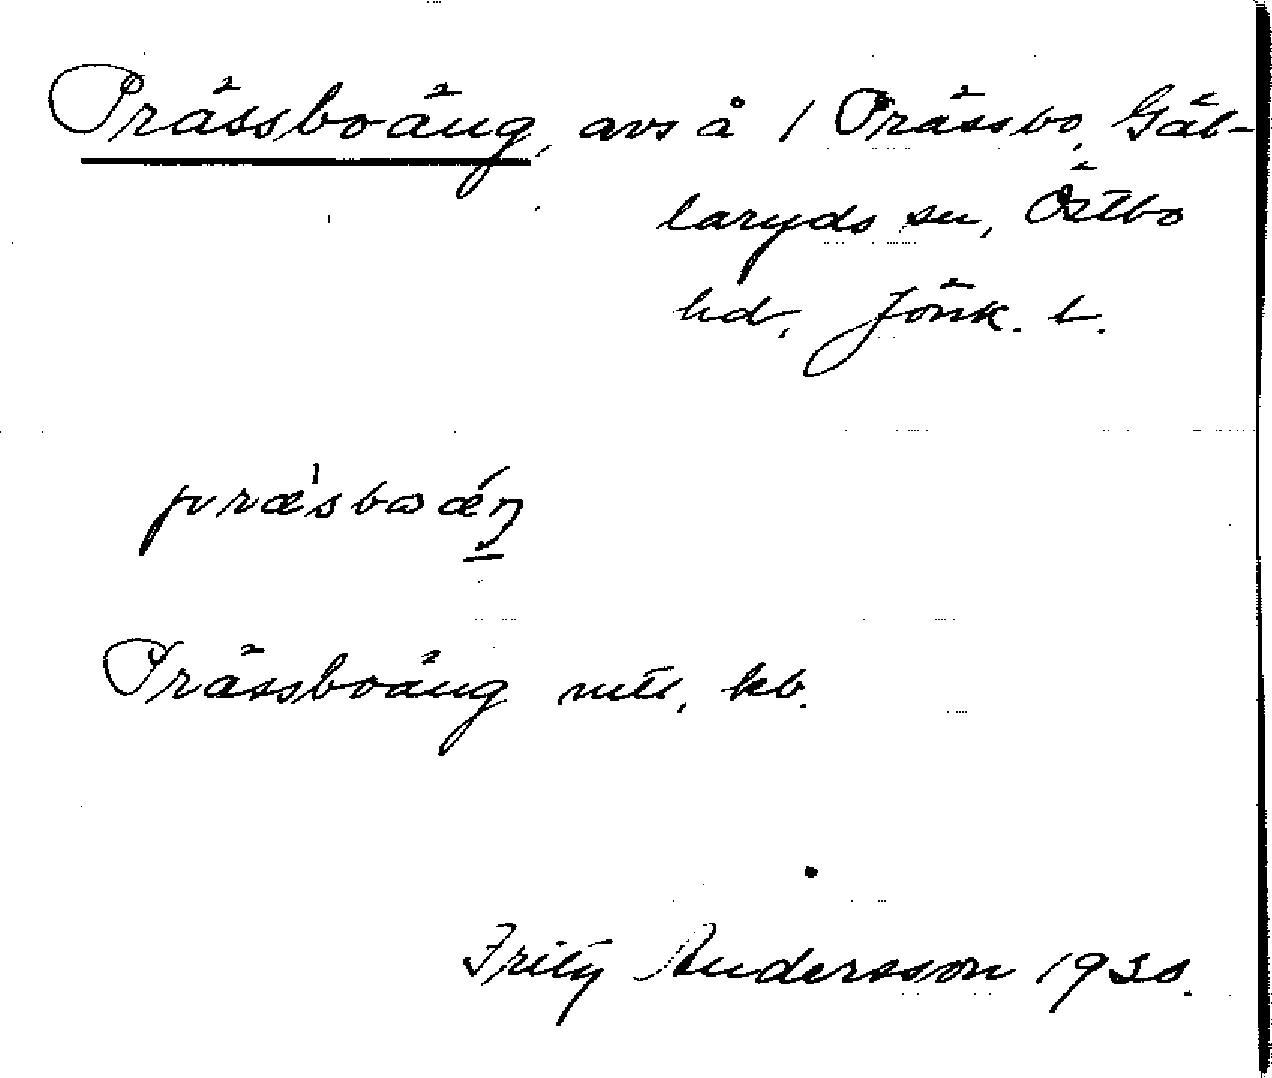 Prässboäng, avs å 1 Prässbo, Gäl-
laryds sn, Östbo
hd, Jönk. l.
præ'sboæ´ŋ
Prässboäng mtl, kb.
Fritz Andersson 1930.